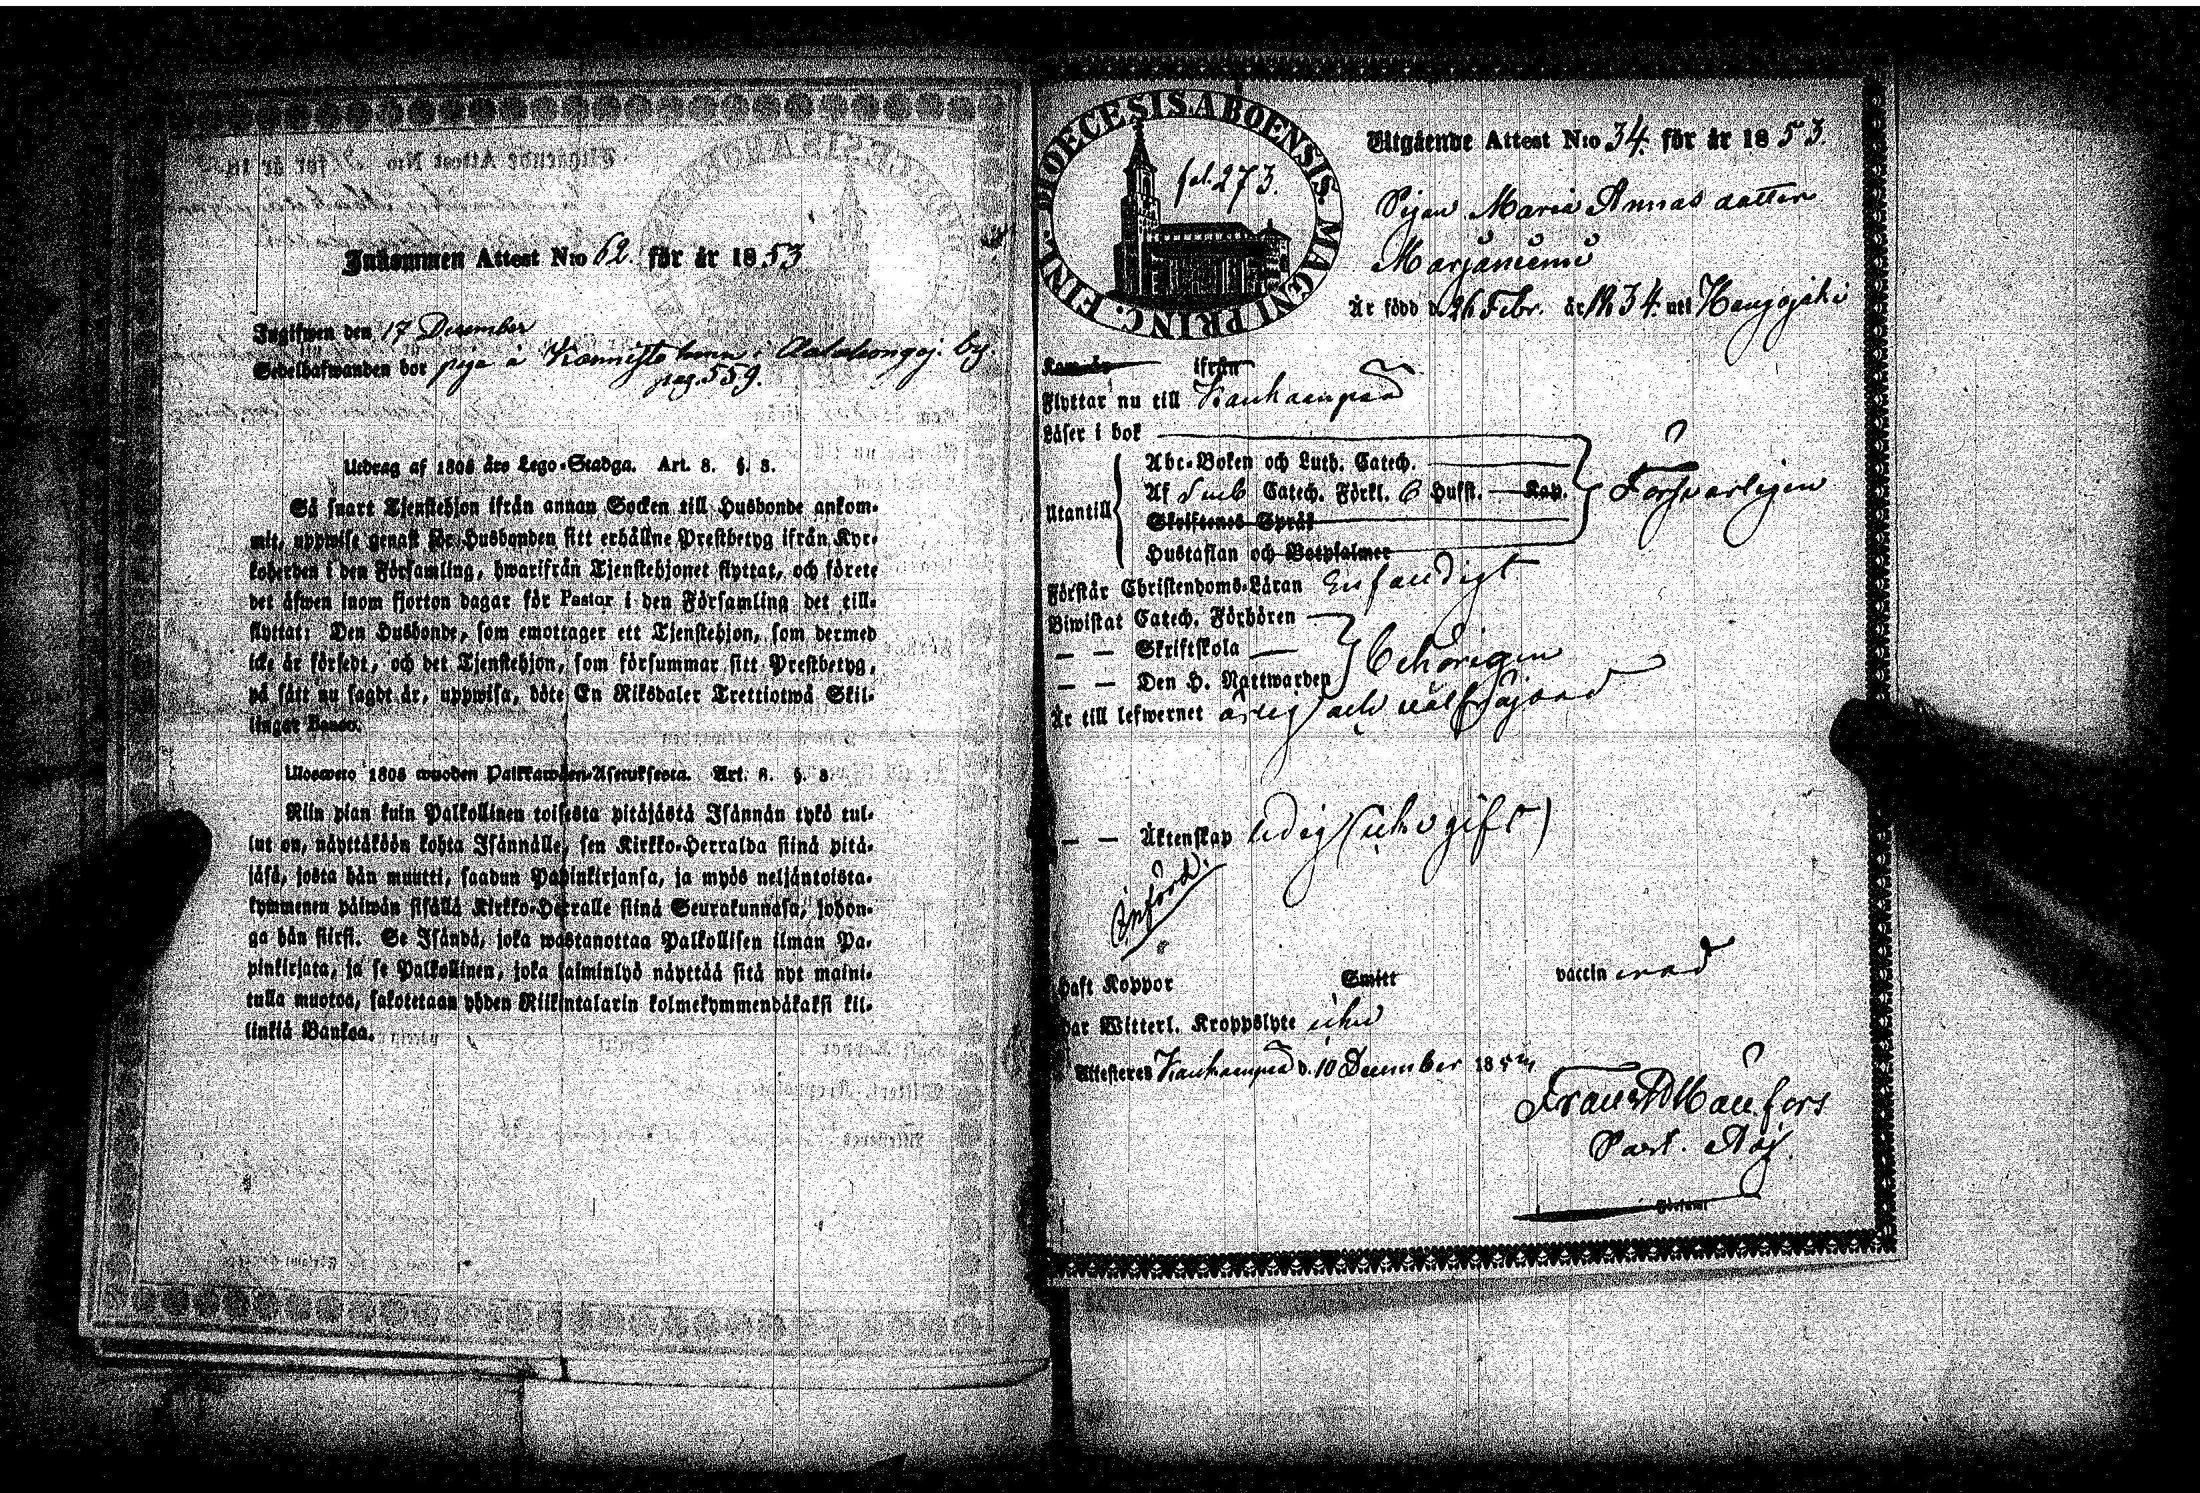 Inkommen Attest N:o 62. för år 1853
Ingifwen den 17 December
Sedelhafwanden bor piga å
pag. 559.
Utdrag af 1805 års Lego-Stadga. Art. 8. §. 8.
Så snart Tjenstehjon ifrån annan Socken till Husbonde ankom-
mit, uppwise genast för Husbonden sitt erhållne Prestbetyg ifrån Kyr-
koherden i den Församling, hwarifrån Tjenstehjonet flyttat, och förete
det äfwen inom fjorton dagar för Pastor i den Församling det till-
flyttat: Den Husbonde, som emottager ett Tjenstehjon, som dermed
icke är försedt, och det Tjenstehjon, som försummar sitt Prestbetyg,
på sätt nu sagdt är, uppwisa, böte En Riksdaler Trettiotwå Skil-
lingar Banco.
Uloswето 1805 wuoden Palkkawäen-Asetuksesta. Art. 8. §. 8
Niin pian kuin Palkollinen toisesta pitäjästä Isännän tykö tul-
lut on, näyttäköön kohta Isännälle, sen Kirkko-Herralda siinä pitä-
jäsä, josta hän muutti, saadun Papinkirjansa, ja myös neljäntoista-
kymmenen päiwän sisällä Kirkko-Herralle siinä Seurakunnasa, johon-
ga hän siirsi. Se Isändä, joka wastanottaa Palkollisen ilman Pa-
pinkirjata, ja se Palkollinen, joka laiminlyö näyttää sitä nyt maini-
tulla muotoa, sakotetaan yhden Riikintalarin kolmekymmendäkaksi kil-
linkiä Bankoa.
DIOECESIS ABOENSIS. MAGNI PRINC. FINL.
fol. 273.
Utgående Attest N:o 34. för år 1853.
Pigan Maria Annas dotter
Marjaniemi
Är född d. 26 Febr. år 1834. uti
Kom år ifrån
Flyttar nu till Kankaanpää
Läser i bok
Utantill
Abc-Boken och Luth. Catech.
Af Catech. Förkl. 6 Hufst. Kap.
Skriftenes Språk
Hustaflan och Botpsalmer
Försvarligen
Förstår Christendoms-Läran Enfaldigt
Biwistat Catech. Förhören
— — Skriftskola
— — Den H. Nattwarden
behörigen
Är till lefwernet ärlig och välfrejdad
— — Äktenskap ledig (icke gift)
Införd.
Haft Koppor Smitt vaccinerad
Har Witterl. Kroppslyte icke
Attesteras Kankaanpää d. 10 December 1853
Past. Adj.